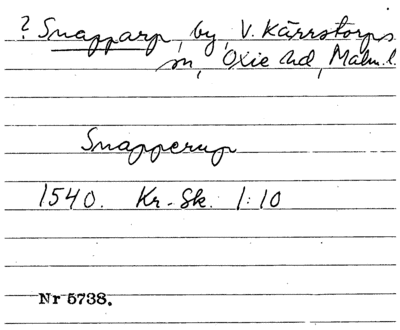 ? Snapparp, by, V. Kärrstorps
sn, Oxie hd, Malm. l.
Snapperup
1540. Kr. Sk. 1:10
Nr 5738.